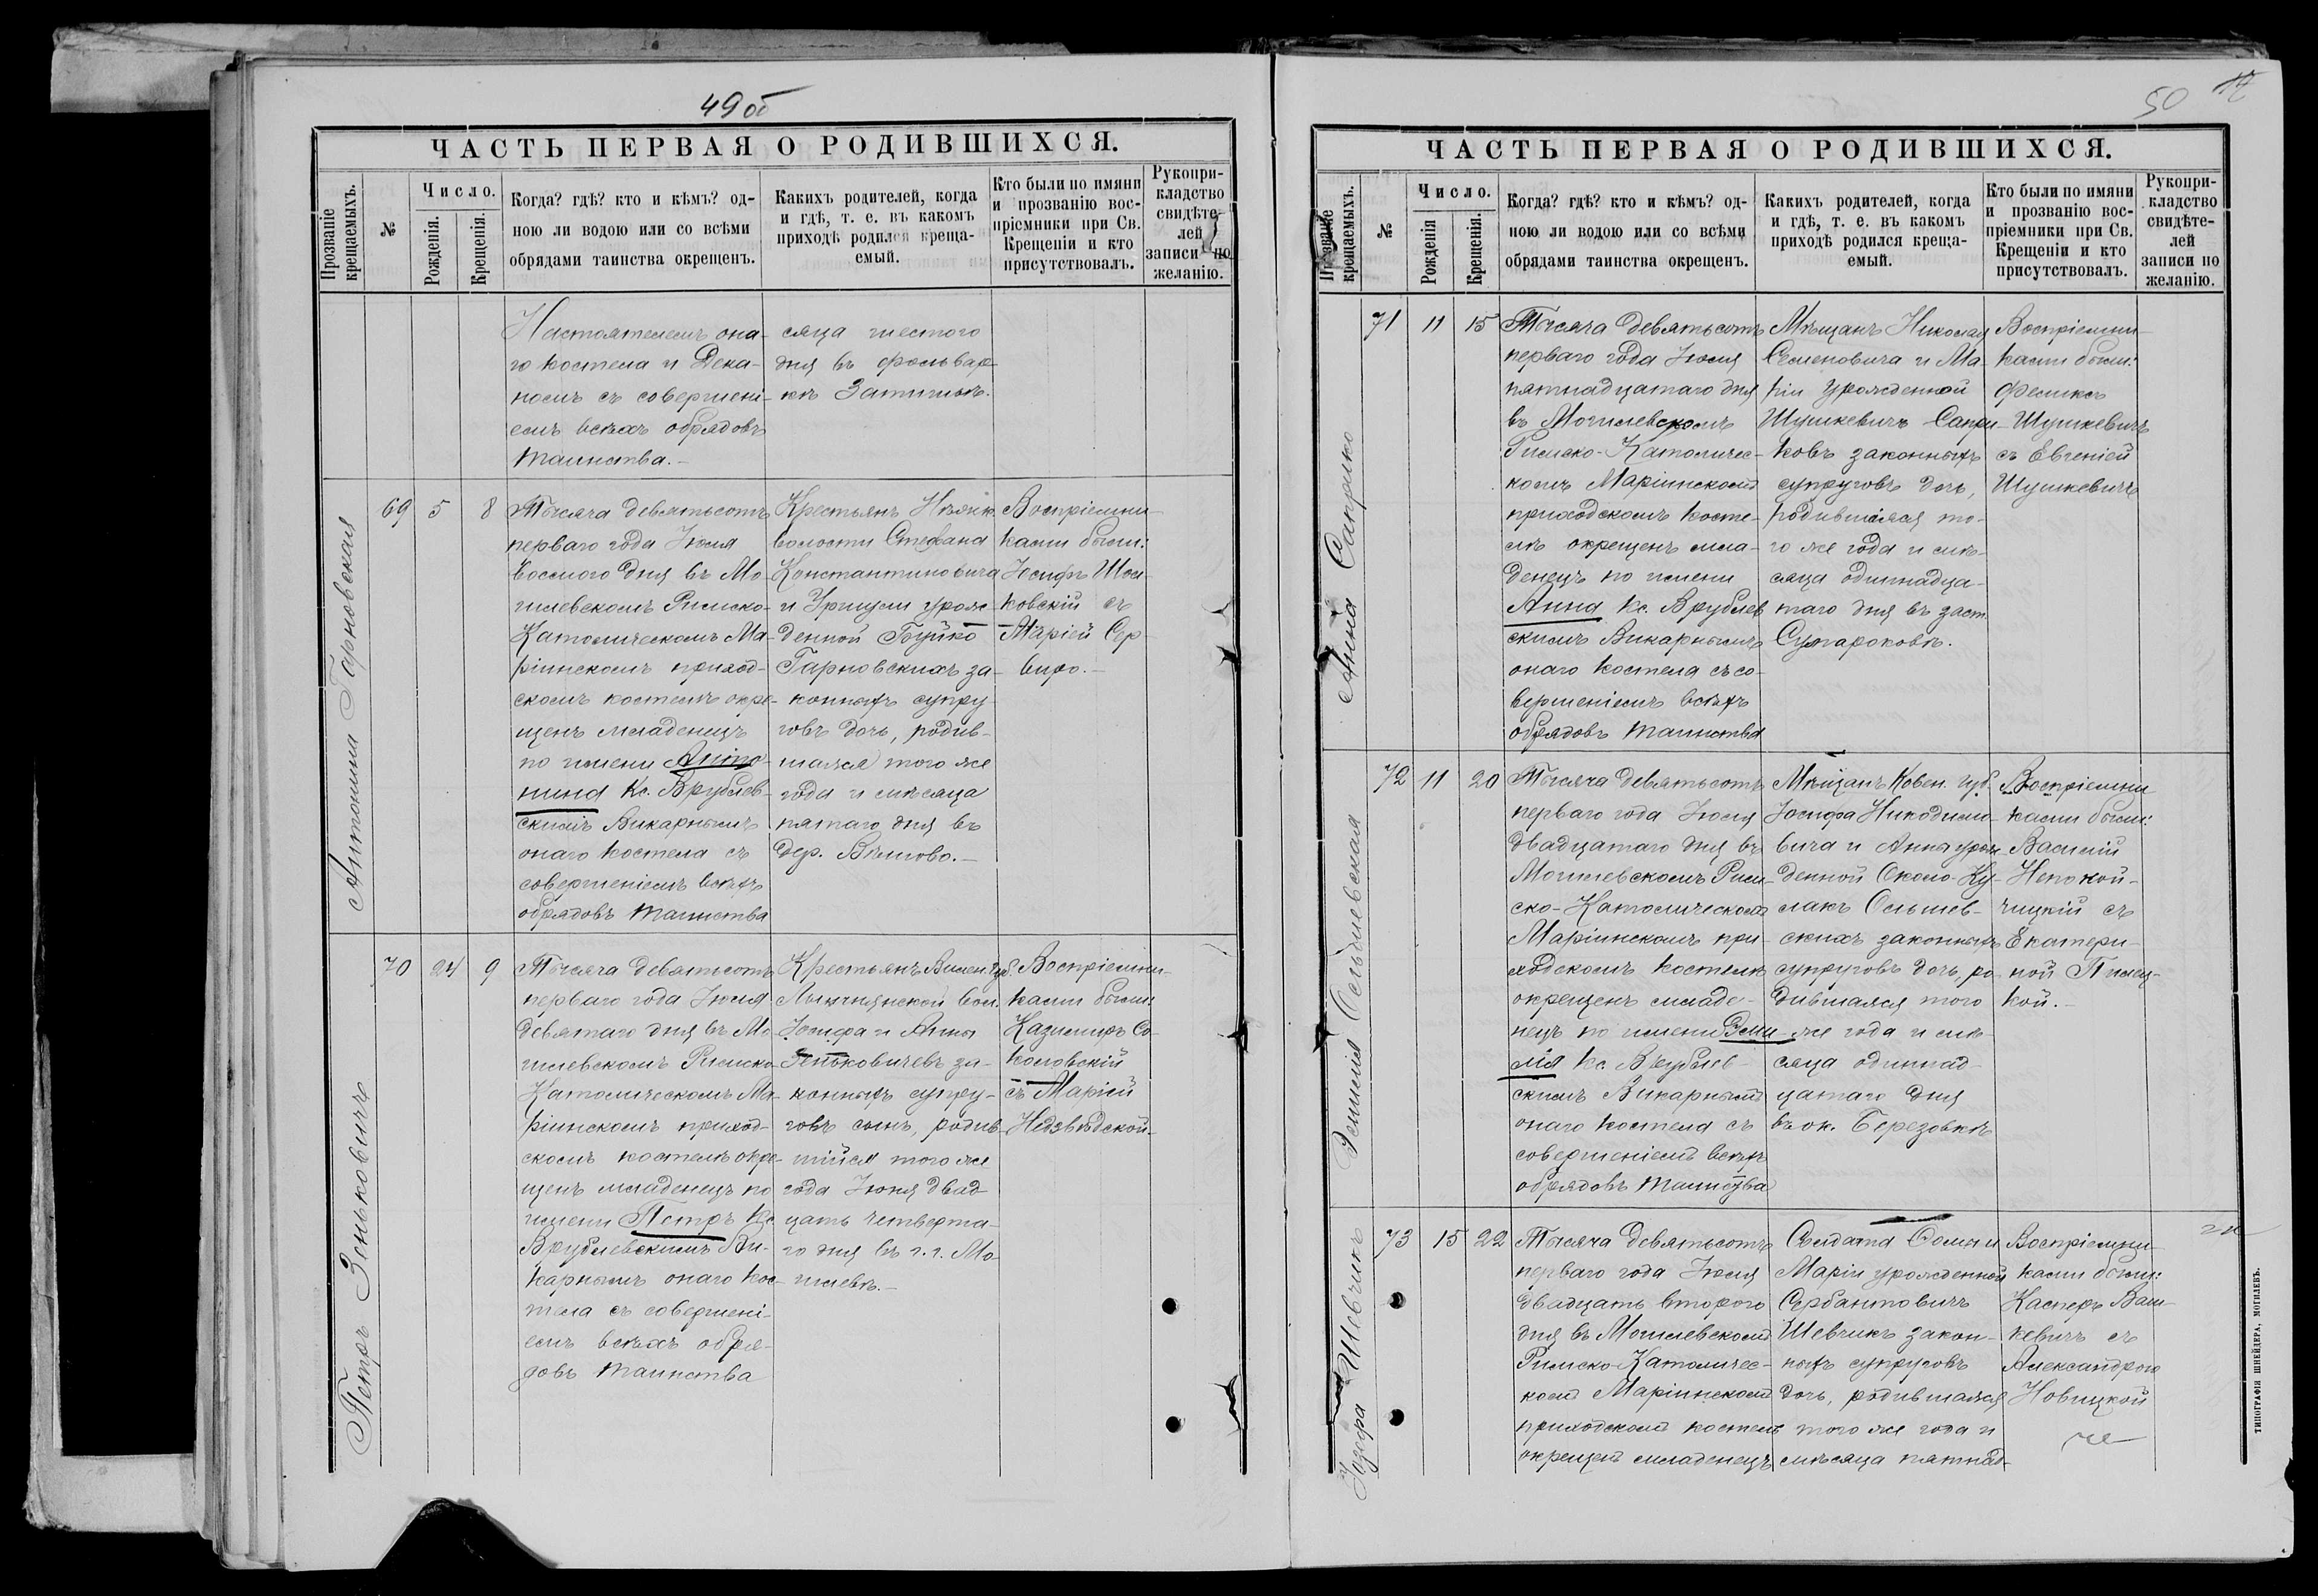 49 об
ЧАСТЬ ПЕРВАЯ О РОДИВШИХСЯ.
Прозваніе крещаемыхъ.
№
Число.
Рожденія.
Крещенія.
Когда? гдѣ? кто и кѣмъ? од-
ною ли водою или со всѣми
обрядами таинства окрещенъ.
Какихъ родителей, когда
и гдѣ, т. е. въ какомъ
приходѣ родился креща-
емый.
Кто были по имяни
и прозванію вос-
пріемники при Св.
Крещеніи и кто
присутствовалъ.
Рукопри-
кладство
свидѣте-
лей
записи по
желанію.
Настоятелемъ она-
го костела и Дека-
номъ съ совершені-
емъ всѣхъ обрядовъ
таинства.-
сяца шестого
дня въ фольвар-
кѣ Затишьѣ.
Антонина Гарновская
69 5 8
Тысяча девятьсотъ
перваго года Іюля
восьмого дня въ Мо-
гилевскомъ Римско-
Католическомъ Ма-
ріинскомъ приход-
скомъ костелѣ окре-
щенъ младенецъ
по имени Анто-
нина Кс. Врублев-
скимъ Викарнымъ
онаго костела съ
совершеніемъ всѣхъ
обрядовъ таинства
Крестьянъ
волости Стефана
Константиновича
и Уршули урож-
денной Буйко
Гарновскихъ за-
конныхъ супру-
говъ дочь, родив-
шаяся того же
года и мѣсяца
пятаго дня въ
дер. Вѣтово.-
Воспріемни-
ками были:
Іосифъ
ковскій съ
Маріей Сер-
виро.-
Петръ Зеньковичъ
70 24 9
Тысяча девятьсотъ
перваго года Іюля
девятаго дня въ Мо-
гилевскомъ Римско
Католическомъ Ма-
ріинскомъ приход-
скомъ костелѣ окре-
щенъ младенецъ по
имени Петръ Кс.
Врублевскимъ Ви-
карнымъ онаго кос-
тела съ совершені-
емъ всѣхъ обря-
довъ таинства
Крестьянъ Вилен. губ.
вол.
Іосифа и Анны
Зеньковичевъ за-
конныхъ супру-
говъ сынъ, родив-
шійся того же
года Іюня двад-
цать четверта-
го дня въ г. г. Мо-
гилевѣ.-
Воспріемни-
ками были:
Казимиръ Со-
коловскій
съ Маріей
Недзвѣдской.
50
ЧАСТЬ ПЕРВАЯ О РОДИВШИХСЯ.
Прозваніе крещаемыхъ.
№
Число.
Рожденія
Крещенія.
Когда? гдѣ? кто и кѣмъ? од-
ною ли водою или со всѣми
обрядами таинства окрещенъ.
Какихъ родителей, когда
и гдѣ, т. е. въ какомъ
приходѣ родился креща-
емый.
Кто были по имяни
и прозванію вос-
пріемники при Св.
Крещеніи и кто
присутствовалъ.
Рукопри-
кладство
свидѣте-
лей
записи по
желанію.
Анна Саприко
71 11 15
Тысяча девятьсотъ
перваго года Іюля
пятнадцатаго дня
въ Могилевскомъ
Римско-Католичес-
комъ Маріинскомъ
приходскомъ косте-
лѣ окрещенъ мла-
денецъ по имени
Анна Кс. Врублев
скимъ Викарнымъ
онаго костела съ со-
вершеніемъ всѣхъ
обрядовъ таинства
Мѣщанъ Николая
Семеновича и Ма-
ріи урожденной
Шушкевичъ Сапри-
ковъ законныхъ
супруговъ дочь,
родившаяся то-
го же года и мѣ-
сяца одиннадца-
таго дня въ заст.
Сумароковѣ.
Воспріемни-
ками были:
Феликсъ
Шушкевичъ
съ Евгеніей
Шушкевичъ
Эмилія Ольшевская
72 11 20
Тысяча девятьсотъ
перваго года Іюля
двадцатаго дня въ
Могилевскомъ Рим-
ско-Католическомъ
Маріинскомъ при-
ходскомъ костелѣ
окрещенъ младе-
нецъ по имени Эми-
лія Кс. Врублев-
скимъ Викарнымъ
онаго костела съ
совершеніемъ всѣхъ
обрядовъ таинства
Мѣщанъ Ковен. губ.
Іосифа Никодимо-
вича и Анны урож-
денной Около-Ку-
лакъ Ольшев-
скихъ законныхъ
супруговъ дочь, ро-
дившаяся того
же года и мѣ-
сяца одиннад-
цатаго дня
въ ок. Березовкѣ
Воспріемни
ками были:
Василій
Непокой-
чицкій съ
Екатери-
ной
кой.-
Юзефа Шевчикъ
73 15 22
Тысяча девятьсотъ
перваго года Іюля
двадцать второго
дня въ Могилевскомъ
Римско-Католичес-
комъ Маріинскомъ
приходскомъ костелѣ
окрещенъ младенецъ
Солдата Фомы и
Маріи урожденной
Сербантовичъ
Шевчикъ закон-
ныхъ супруговъ
дочь, родившаяся
того же года и
мѣсяца пятнад-
Воспріемни-
ками были:
Касперъ Ваш-
кевичъ съ
Александрою
Новицкой
ТИПОГРАФІЯ ШНЕЙДЕРА, МОГИЛЕВЪ.